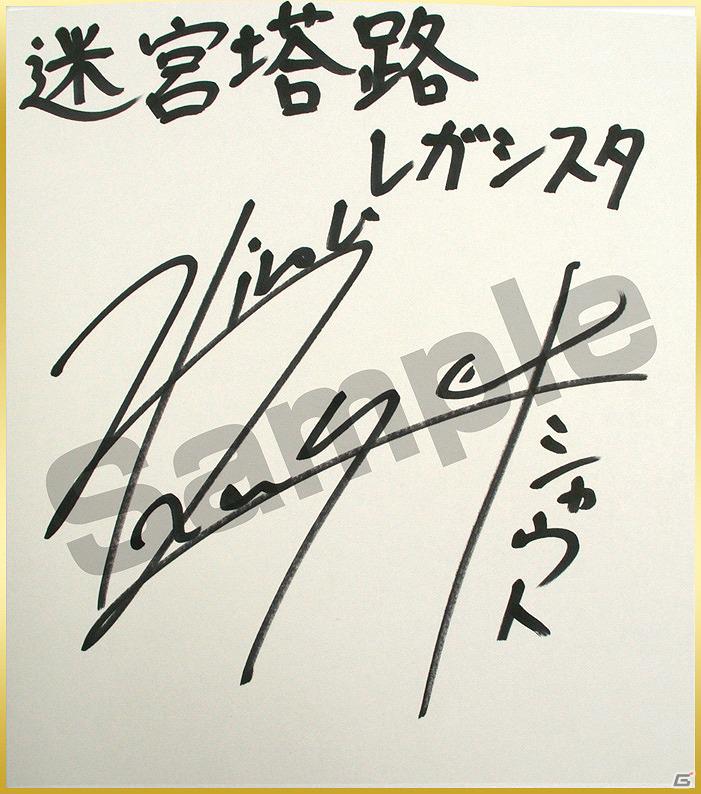 迷宮塔路
レガシスタ
Hiroki
シャウト
Sample